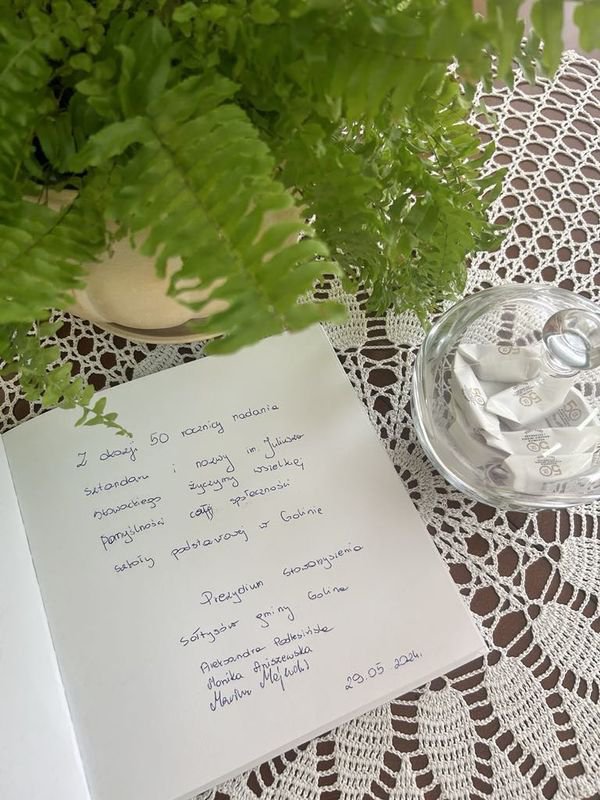 Z okazji 50 rocznicy nadania
sztandaru i nazwy im. Juliusza
Słowackiego życzymy wszelkiej
pomyślności całej społeczności
szkoły podstawowej w Golinie
Prezydium Stowarzyszenia
Sołtysów gminy Golina
Aleksandra Podlesińska
Monika Aniszewska
Majewski
29.05.2024r.
50
50